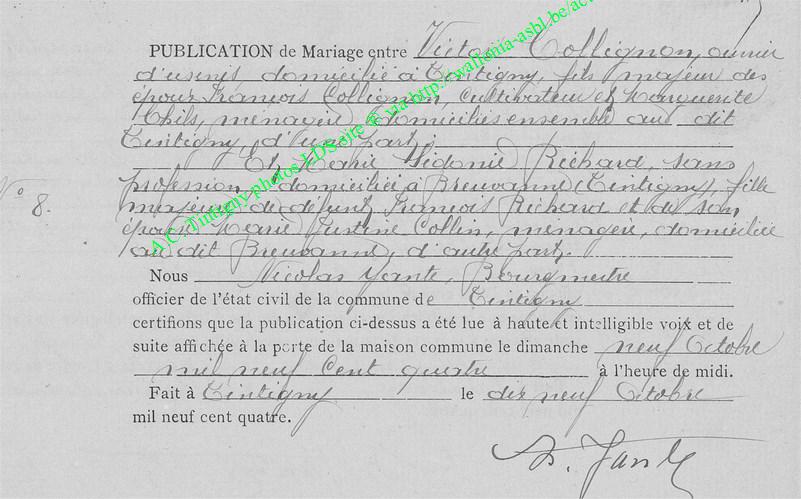 PUBLICATION de Mariage entre Victor Collignon, ouvrier
d'usines domicilié à Tintigny, fils majeur des
époux François Collignon, cultivateur et Marguerite
ménagère domiciliés ensemble au dit
Tintigny, d'une part;
Et Marie Sidonie Richard, sans
profession domiciliée à Breuvanne (Tintigny), fille
No 8.
majeure de défunt François Richard et de son
épouse Marie Justine Collin, ménagère, domiciliée
au dit Breuvanne, d'autre part.
Nous Nicolas Yante, Bourgmestre
officier de l'état civil de la commune de Tintigny
certifions que la publication ci-dessus a été lue à haute et intelligible voix et de
suite affichée à la porte de la maison commune le dimanche neuf Octobre
mil neuf cent quatre à l'heure de midi.
Fait à Tintigny le dix neuf Octobre
mil neuf cent quatre.
N. Yante
A.C. Tintigny photos LDS site ® via http://wallonia-asbl.be/ac